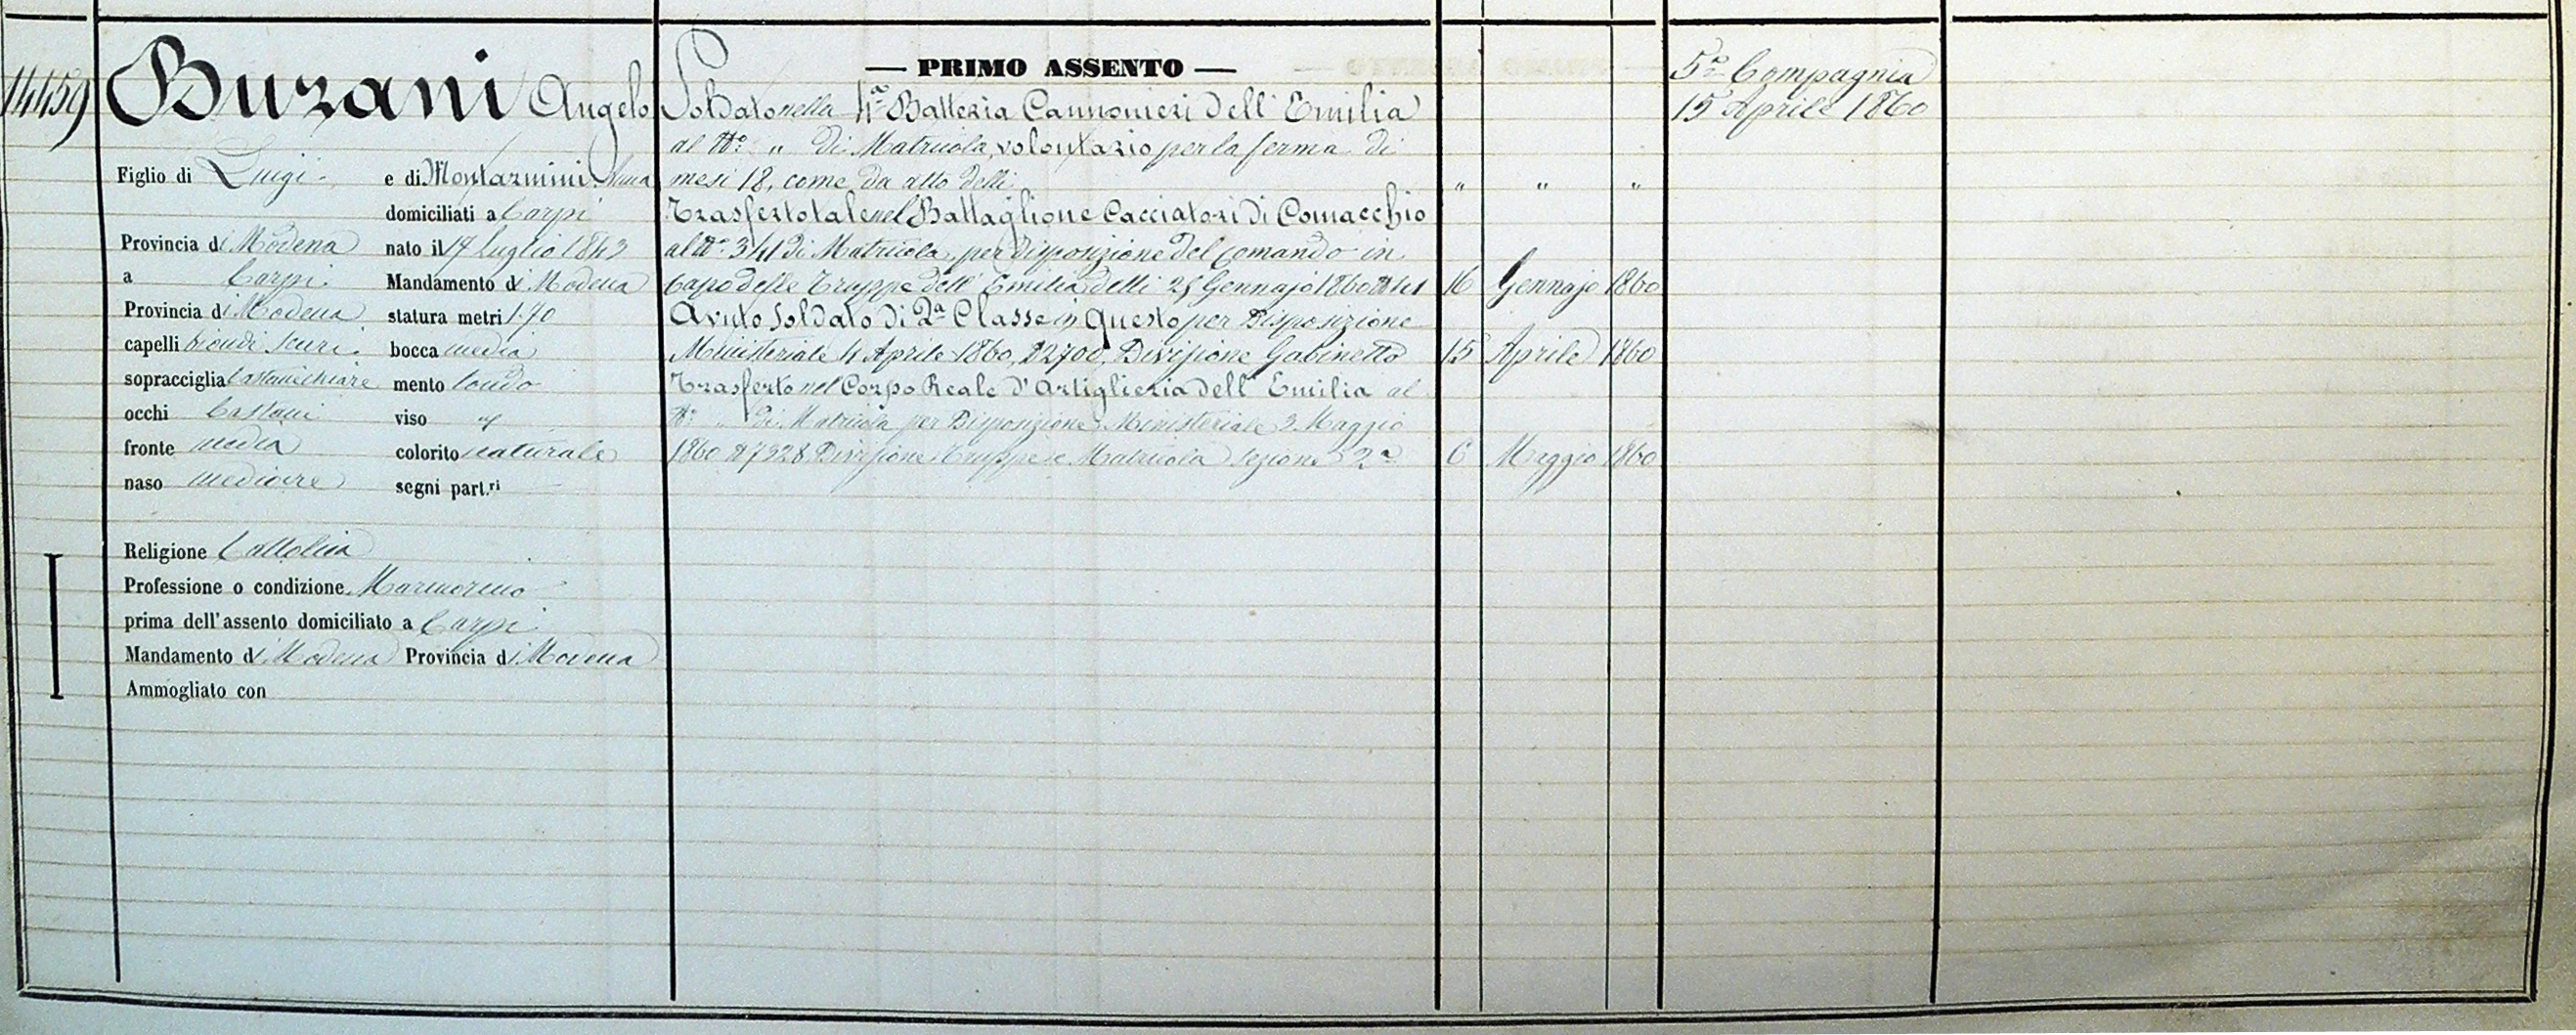 14459
Buzani Angelo
Figlio di Luigi e di Montarmini Anna
domiciliati a Carpi
Provincia di Modena nato il 17 Luglio 1843
a Carpi Mandamento di Modena
Provincia di Modena statura metri 1.70
capelli biondi scuri bocca media
sopracciglia Castanichiare mento tondo
occhi Castani viso
fronte media colorito naturale
naso mediocre segni part.ri
Religione Cattolica
Professione o condizione Marmorino
prima dell'assento domiciliato a Carpi
Mandamento di Modena Provincia di Modena
Ammogliato con
— PRIMO ASSENTO —
Soldato nella 4a Batteria Cannonieri dell' Emilia
al No. " di Matricola, volontario per la ferma di
mesi 18, come da atto delli " " "
Trasferto tale nel Battaglione Cacciatori di Comacchio
al No. 341 di Matricola, per disposizione del Comando in
Capo delle Truppe dell' Emilia delli 25 Gennajo 1860 16 Gennajo 1860
Avuto Soldato di 2a Classe in Questo per Disposizione
Ministeriale 4 Aprile 1860, N 2700, Divisione Gabinetto 15 Aprile 1860
Trasferto nel Corpo Reale d'Artiglieria dell' Emilia al
No. " di Matricola per Disposizione Ministeriale 3 Maggio
1860 N 7928 Divisione Truppe e Matricola Sezione 2a 6 Maggio 1860
5a Compagnia
15 Aprile 1860